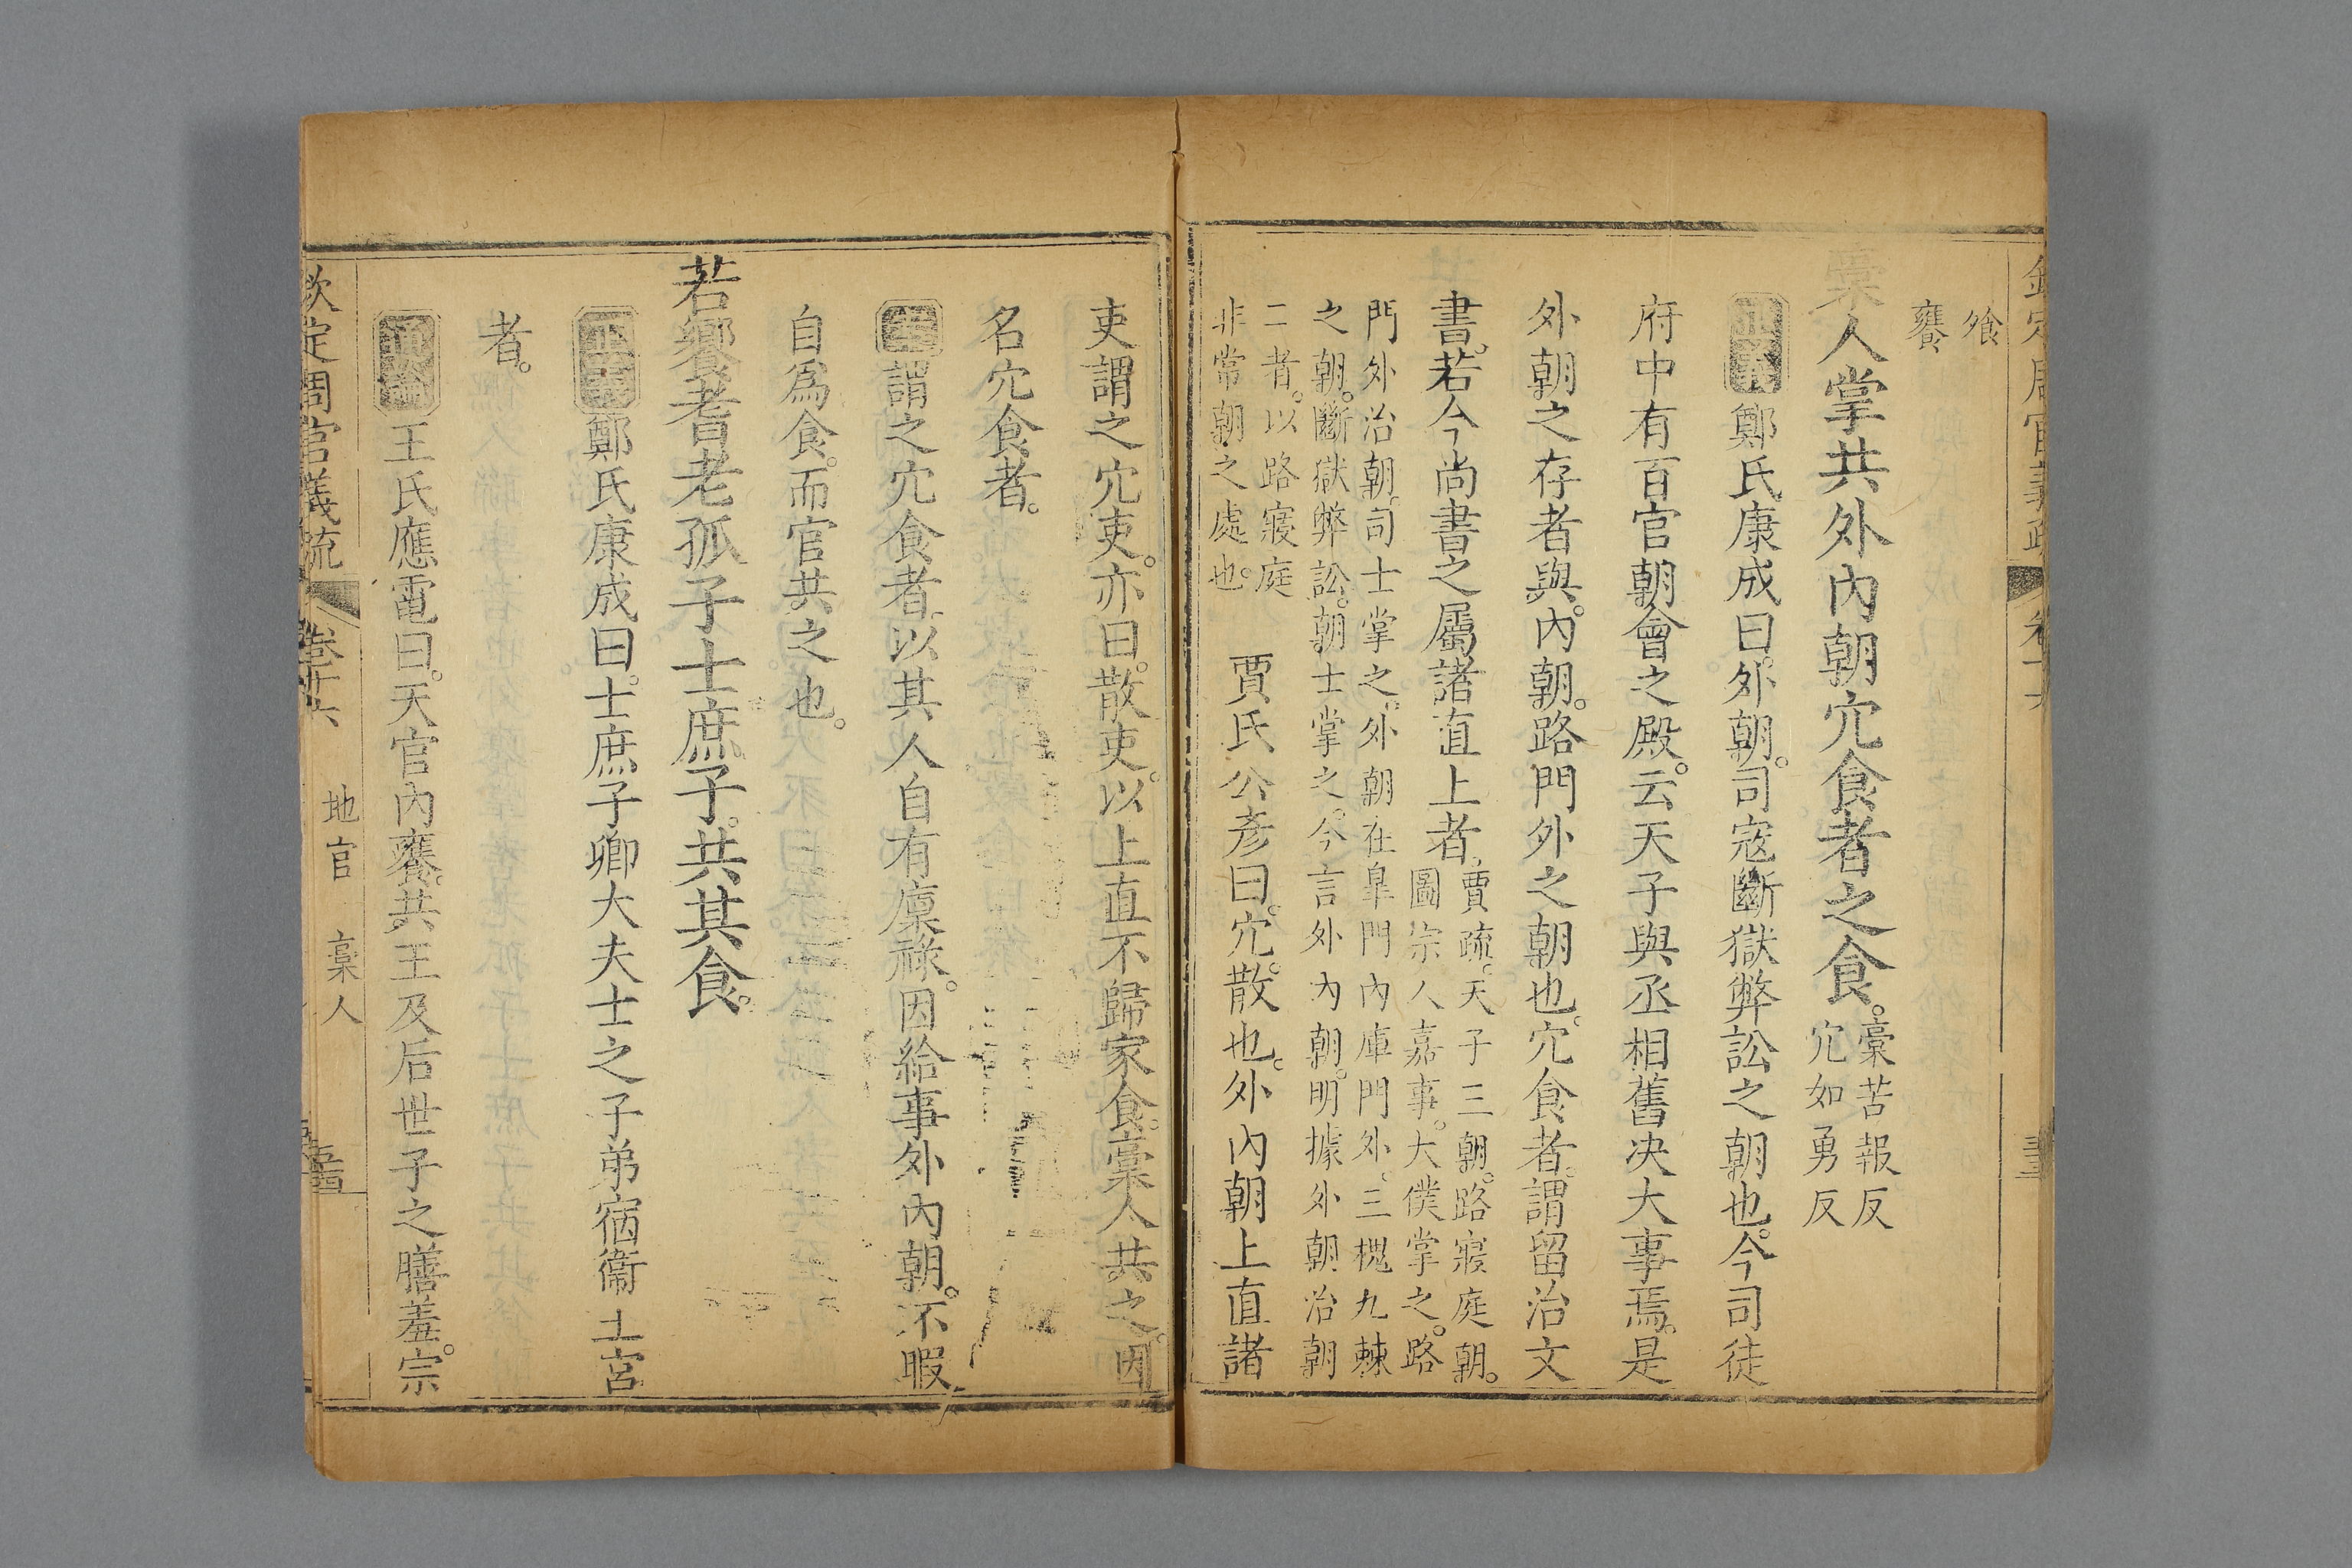 飧
饔
稾人掌共外內朝宂食者之食。稾苦報反
宂如勇反
正義鄭氏康成曰。外朝。司寇斷獄弊訟之朝也。今司徒
府中有百官朝會之殿。云天子與丞相舊决大事焉。是
外朝之存者與。內朝。路門外之朝也。宂食者。謂留治文
書。若今尚書之屬諸直上者。賈疏。天子三朝。路寢庭朝。
圖宗人嘉事。大僕掌之。路
門外治朝。司士掌之。外朝在皐門內庫門外。三槐九棘
之朝。斷獄弊訟。朝士掌之。今言外內朝。明據外朝治朝
二者。以路寢庭
非常朝之處也。
賈氏公彥曰。宂。散也。外內朝上直諸
吏謂之宂吏。亦曰。散吏。以上直不歸家食。稾人共之。因
名宂食者。
謂之宂食者。以其人自有廩祿。因給事外內朝。不暇
自爲食。而官共之也。
若饗耆老孤子士庶子。共其食。
正義鄭氏康成曰。士庶子卿大夫士之子弟宿衞王宮
者。
通論王氏應電曰。天官內饔。共王及后世子之膳羞。宗
欽定周官義疏
卷十六
地官
稾人